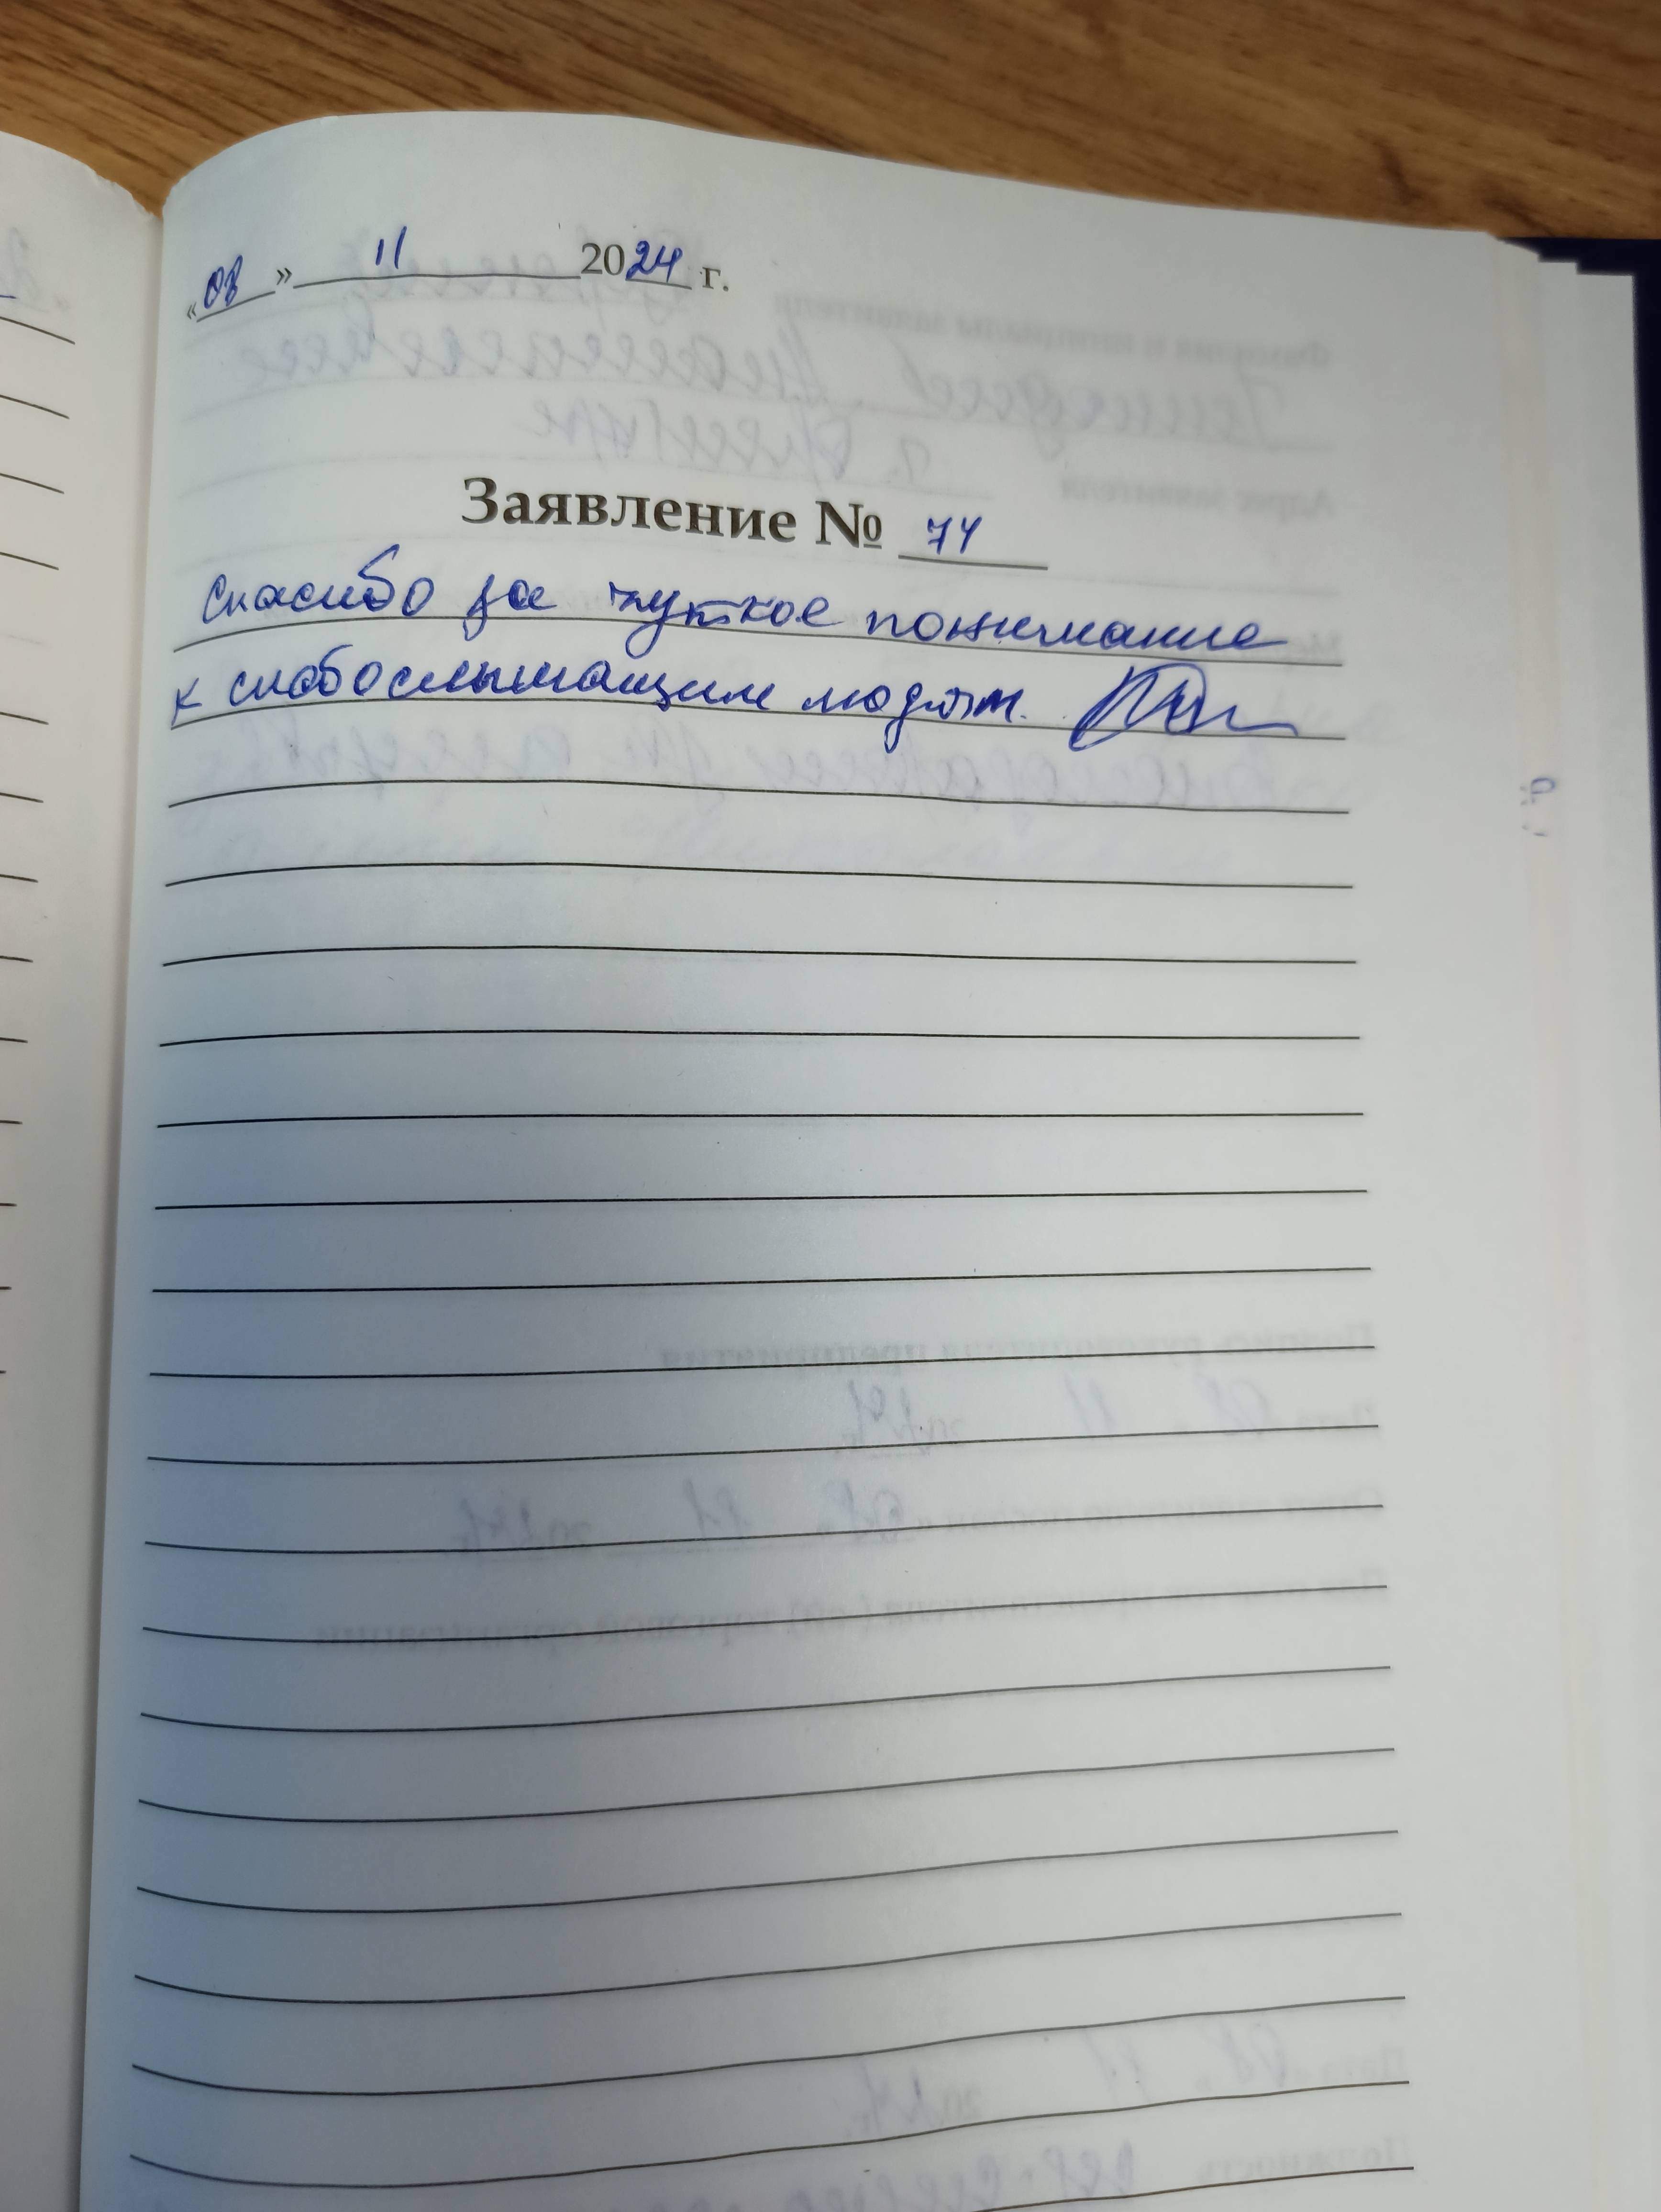 «08» 11 2024 г.
Заявление № 74
Спасибо за чуткое понимание
к слабослышащим людям.